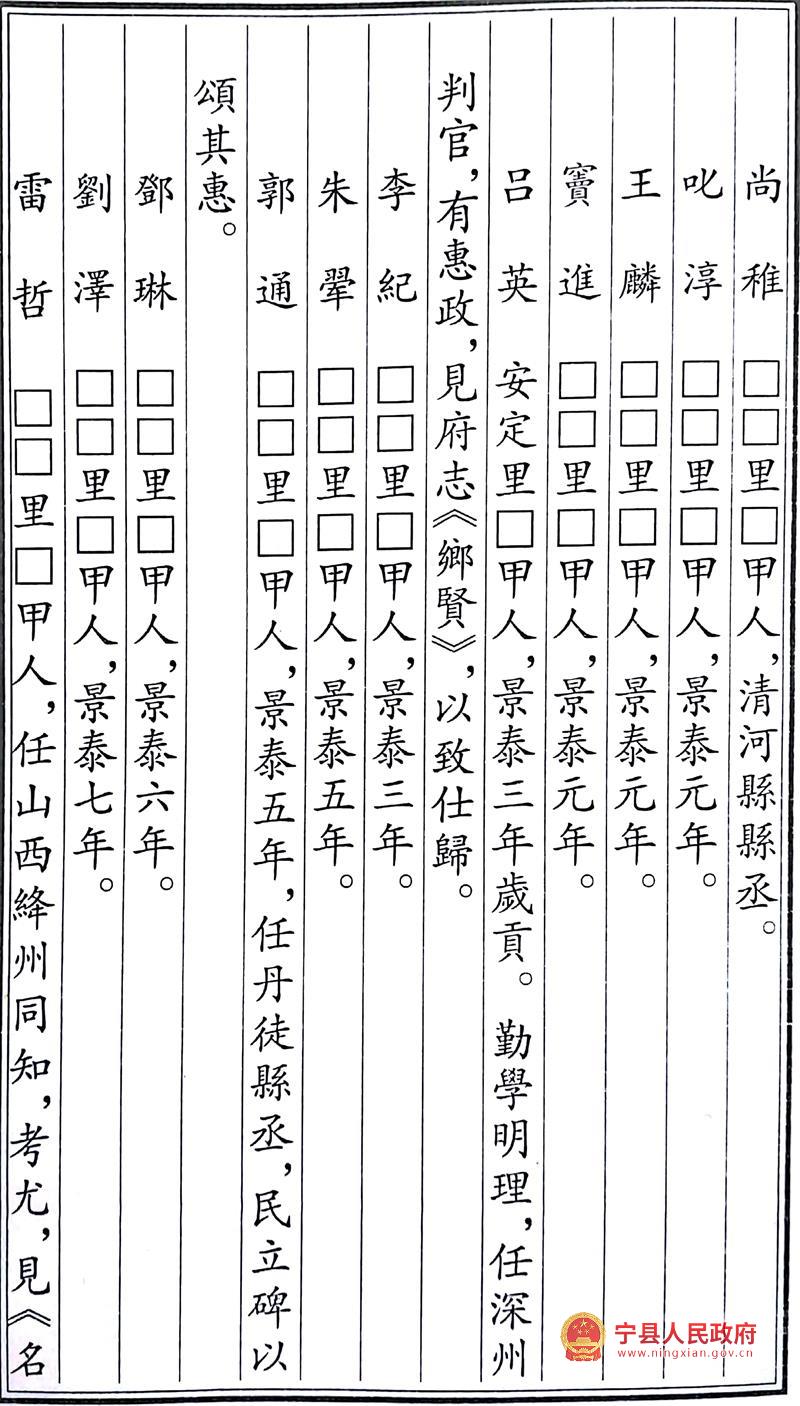 尚稚 □□里□甲人，清河縣縣丞。
叱淳 □□里□甲人，景泰元年。
王麟 □□里□甲人，景泰元年。
竇進 □□里□甲人，景泰元年。
吕英 安定里□甲人，景泰三年歲貢。勤學明理，任深州
判官，有惠政，見府志《鄉賢》，以致仕歸。
李紀 □□里□甲人，景泰三年。
朱翬 □□里□甲人，景泰五年。
郭通 □□里□甲人，景泰五年，任丹徒縣丞，民立碑以
頌其惠。
鄧琳 □□里□甲人，景泰六年。
劉澤 □□里□甲人，景泰七年。
雷哲 □□里□甲人，任山西絳州同知，考尤，見《名
宁县人民政府
www.ningxian.gov.cn